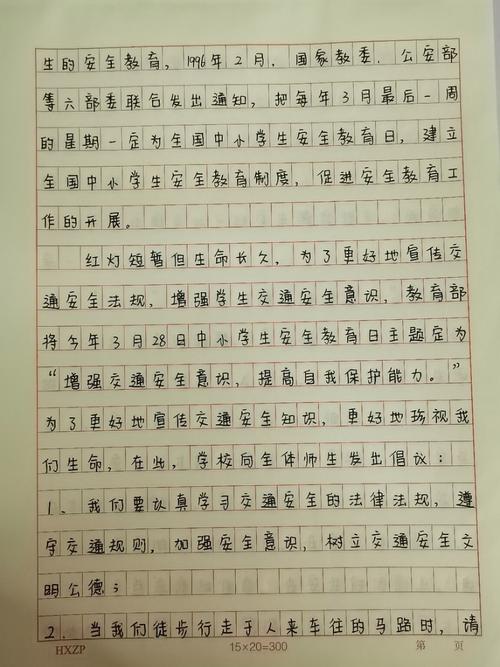 生的安全教育，1996年2月，国家教委、公安部
等六部委联合发出通知，把每年3月最后一周
的星期一定为全国中小学生安全教育日，建立
全国中小学生安全教育制度，促进安全教育工
作的开展。
红灯短暂但生命长久，为了更好地宣传交
通安全法规，增强学生交通安全意识，教育部
将今年3月28日中小学生安全教育日主题定为
“增强交通安全意识，提高自我保护能力。”
为了更好地宣传交通安全知识，更好地珍视我
们生命，在此，学校向全体师生发出倡议：
1、我们要认真学习交通安全的法律法规，遵
守交通规则，加强安全意识，树立交通安全文
明公德；
2．当我们徒步行走于人来车往的马路时，请
HXZP 15×20=300 第 页